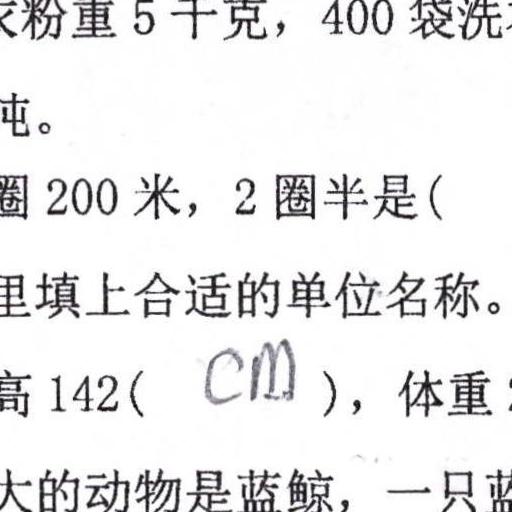 粉重5千克，400袋洗
吨。
圈200米，2圈半是(
里填上合适的单位名称。
高142( cm )，体重
大的动物是蓝鲸，一只蓝